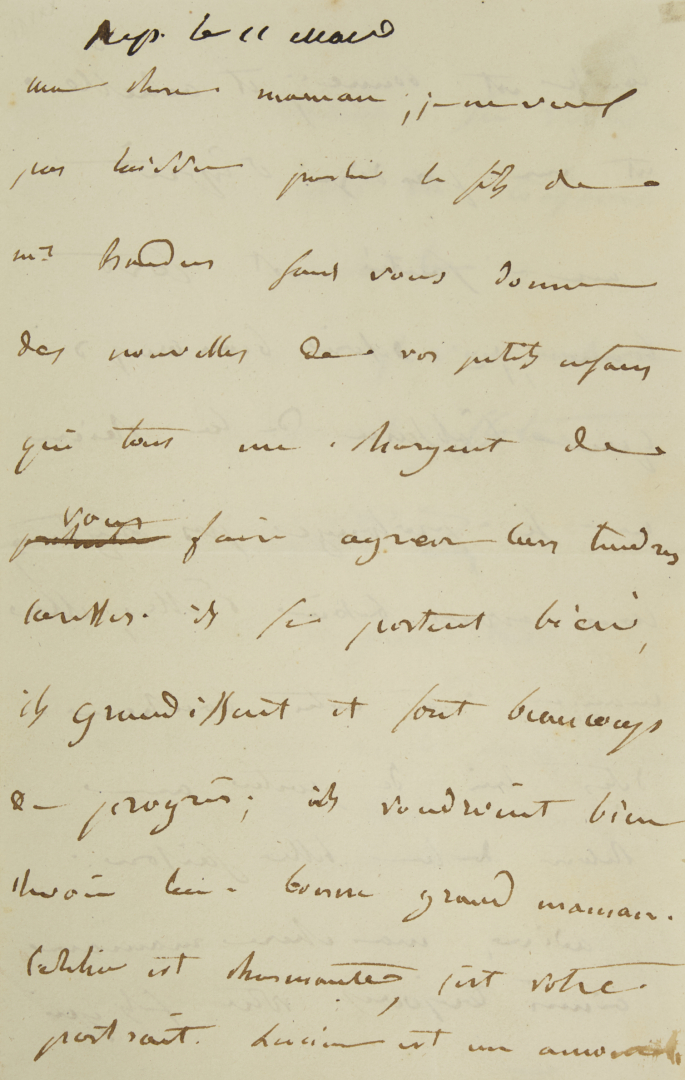 Rep. le 11 mars
ma chere maman, je ne veux
pas laisser partir le fils de
mr sans vous donner
des nouvelles de vos petits enfans
qui tous me chargent de
vous faire agreer leurs tendres
caresses. ils se portent bien,
ils grandissent et font beaucoup
de progrès; ils voudroient bien
revoir leur bonne grand maman.
est charmante, c'est votre
portrait. Lucien est un amour,